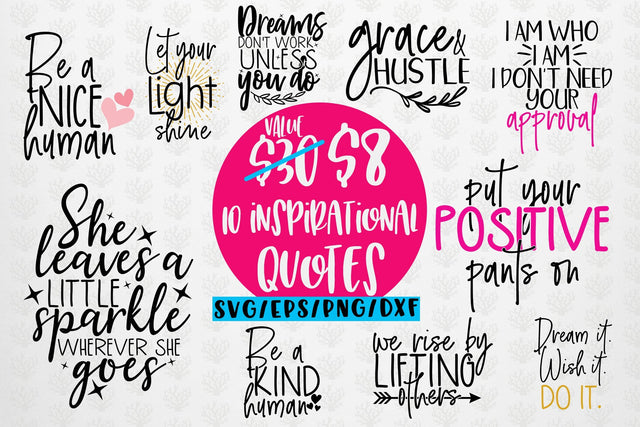 Be a
NICE
human
Let your
Light
shine
Dreams
DON'T WORK
UNLESS
you do
grace &
HUSTLE
I AM WHO
I AM
I DON'T NEED
YOUR
approval
VALUE
$30 $8
10 INSPIRATIONAL
QUOTES
SVG/EPS/PNG/DXF
She
leaves a
LITTLE
sparkle
WHEREVER SHE
goes
put your
POSITIVE
pants on
Be a
KIND
human
we rise by
LIFTING
others
Dream it.
Wish it.
DO IT.